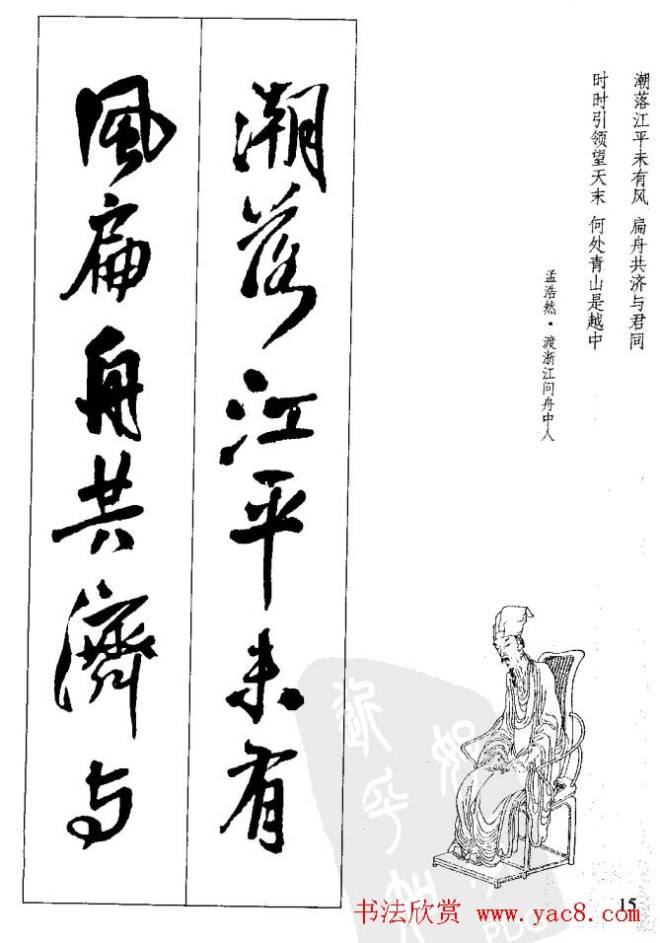 潮落江平未有风 扁舟共济与君同
时时引领望天末 何处青山是越中
孟浩然·渡浙江问舟中人
潮落江平未有
風扁舟共濟与
15
书法欣赏 www.yac8.com